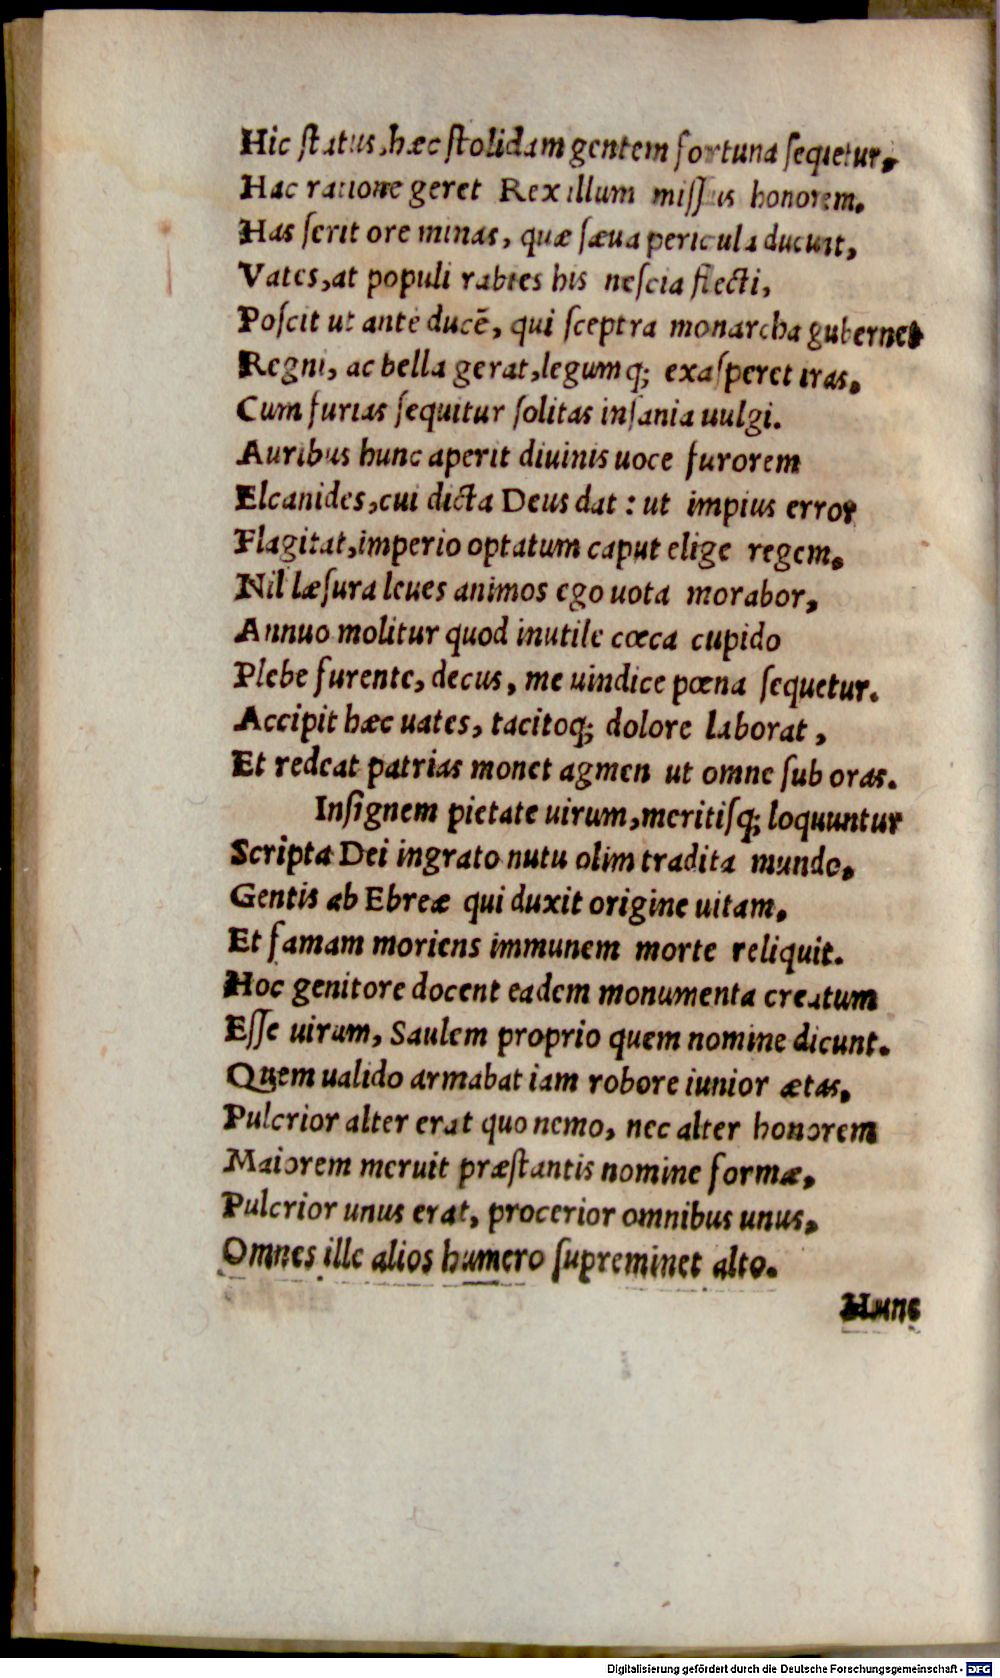 Hic ſtatus, hæc ſtolidam gentem fortuna ſequetur,
Hac ratione geret Rex illum miſſus honorem.
Has ſerit ore minas, quæ ſæua pericula ducunt,
Vates, at populi rabies his neſcia flecti,
Poſcit ut ante ducē, qui ſceptra monarcha gubernet
Regni, ac bella gerat, legumq; exaſperet iras,
Cum furias ſequitur ſolitas inſania uulgi.
Auribus hunc aperit diuinis uoce furorem
Elcanides, cui dicta Deus dat: ut impius error
Flagitat, imperio optatum caput elige regem,
Nil læſura leues animos ego uota morabor,
Annuo molitur quod inutile cœca cupido
Plebe furente, decus, me uindice pœna ſequetur.
Accipit hæc uates, tacitoq; dolore laborat,
Et redeat patrias monet agmen ut omne ſub oras.
Inſignem pietate uirum, meritiſq; loquuntur
Scripta Dei ingrato nutu olim tradita mundo,
Gentis ab Ebreæ qui duxit origine uitam,
Et famam moriens immunem morte reliquit.
Hoc genitore docent eadem monumenta creatum
Eſſe uirum, Saulem proprio quem nomine dicunt.
Quem ualido armabat iam robore iunior ætas,
Pulcrior alter erat quo nemo, nec alter honorem
Maiorem meruit præſtantis nomine formæ,
Pulcrior unus erat, procerior omnibus unus,
Omnes ille alios humero ſupreminet alto.
Hunc
Digitalisierung gefördert durch die Deutsche Forschungsgemeinschaft - DFG